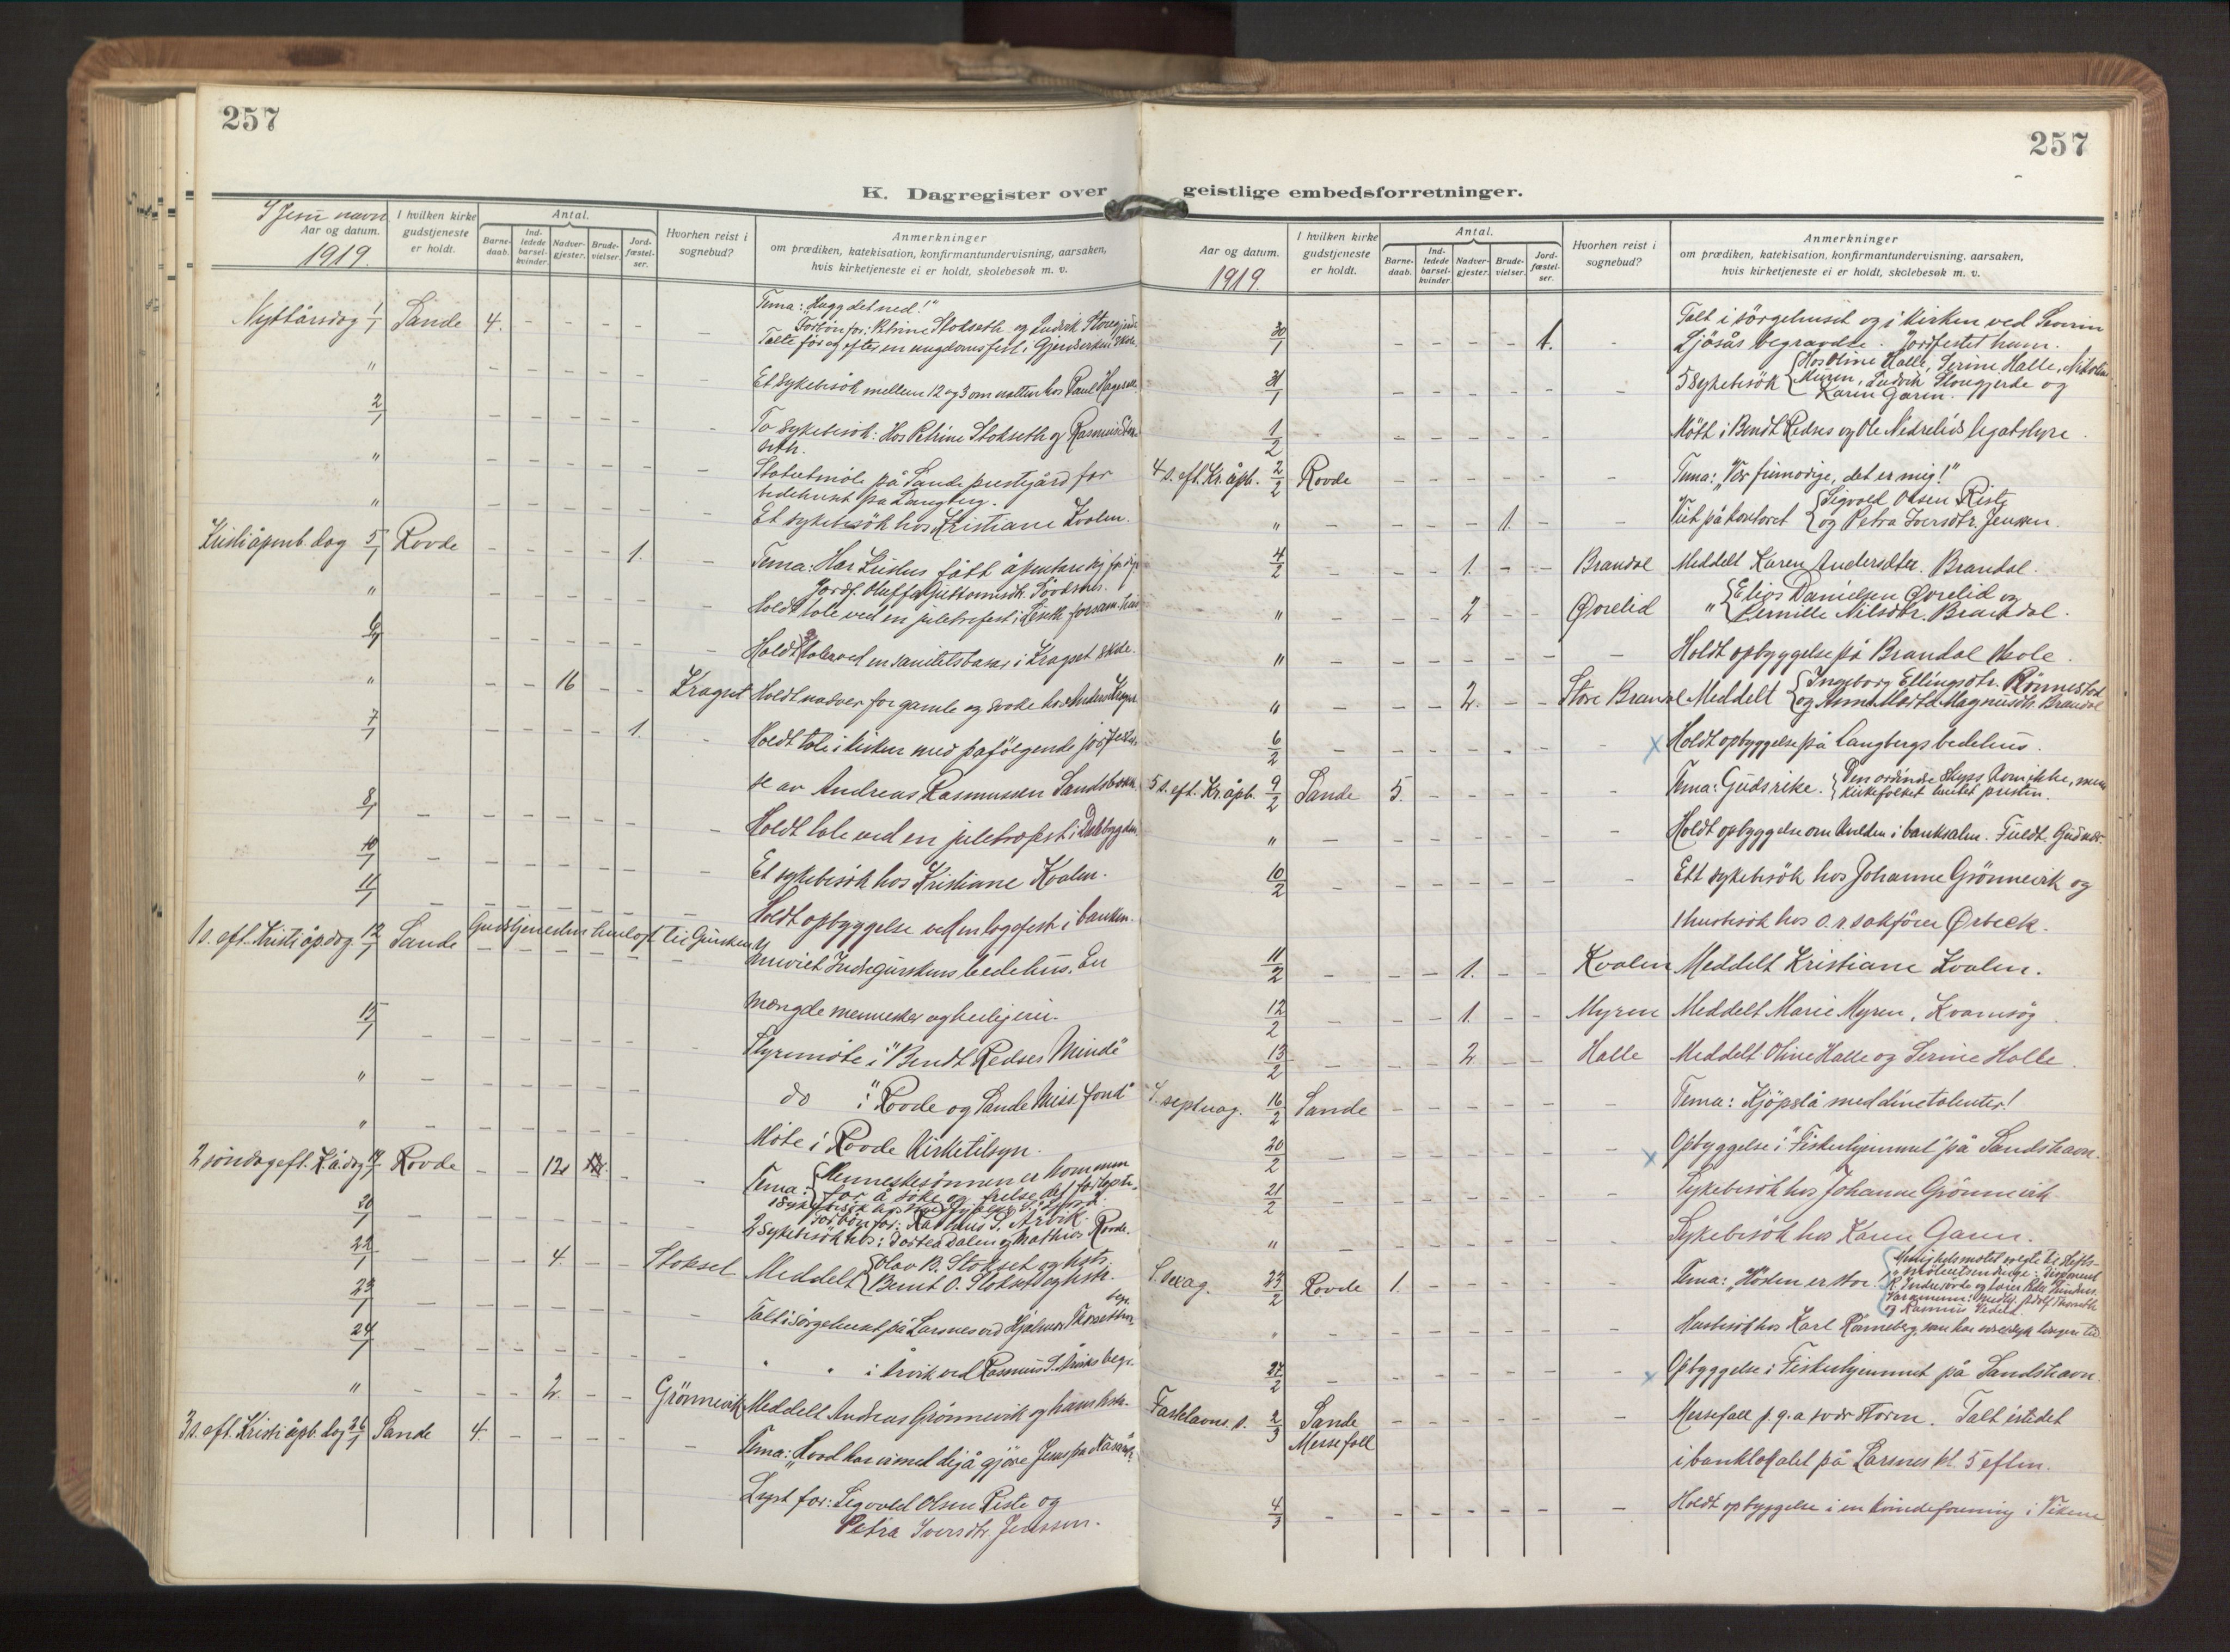 257
257
K. Dagregister over geistlige embedsforretninger.
I Jesu navn
Aar og datum.
1919
I hvilken kirke gudstjeneste er holdt.
Antal.
Barnedaab.
Indledede barselkvinder.
Nadvergjester.
Brudevielser.
Jordfæstelser.
Hvorhen reist i sognebud?
Anmerkninger
om prædiken, katekisation, konfirmantundervisning, aarsaken,
hvis kirketjeneste ei er holdt, skolebesøk m. v.
Nyttårsdag 1/1 Sande 4. - - - - - Tema: "Hugg det ned!"
Forbön for: Petrine Stokseth og Ludvik
Talte før og efter en ungdomsfest i
" - - - - - - Et sykebesök mellem 12 og 3 om natten hos Paul
2/1 - - - - - - To sykebesök: Hos Petrine Stokseth og Rasmus
seth.
" - - - - - - på Sande prestegård for
bedehuset på Langberg.
" - - - - - Et sykebesök hos Kristiane Kvalen.
Kristi åpenb. dag 5/1 Rovde - - - - 1. - Tema: Har Kristus fått åpenbare sig for dig?
Jordf. Oluffa
" - - - - - - Holdt tale ved en juletrefest i
6/1 - - - - - - Holdt 2 taler ved en sanitetsbasar i Kragset skole.
" - - 16 - - Kragset Holdt nadver for gamle og svake hos Anders Kragset
7/1 - - - - 1. - Holdt tale i kirken med påfölgende jordfestel-
se av Andreas Rasmussen Sandsbakk.
8/1 - - - - - - Holdt tale ved en juletrefest i Dalsbygden.
10/1 - - - - - - Et sykebesök hos Kristiane Kvalen.
11/1 - - - - - - Holdt opbyggelse ved en logefest i banken.
1 s. eft. Kristi åp. dag 12/1 Sande Gudstjenesten henlagt til Gursken
Inviet Indregurskens bedehus. En
mængde mennesker
15/1 - - - - - - Styremöte i "Bendt Redses Minde"
" - - - - - - do i "Rovde og Sande Miss. fond"
" - - - - - - Möte i Rovde Kirketilsyn.
2 söndag eft. K. å. dag 19/1 Rovde - - 12 - - Tema: Menneskesönnen er kommen
for å söke og frelse det fortapte.
Forbön for: Rasmus S. Årvik.
20/1 - - - - - - 2 sykebesök hos: Dortea Dalen og Mathias Rovde.
22/1 - - 4. - - Stokset Meddelt Olav B. Stokset og hstr.
Bernt O. Stokset og hstr.
23/1 - - - - - - Talt i sörgehuset på Larsnes ved Hjalmar begr.
24/1 - - - - - - " " i Årvik ved Rasmus S. Årviks begr.
" - - 2. - - Grönnevik Meddelt Andreas Grönnevik og hans hstr.
3 s. eft. Kristi åpb. dag 26/1 Sande 4. - - - - - Tema: "Hvad har vi med dig å gjöre Jesus fra Nasaret
Lyst for: Sigvald Olsen Riste og
Petra Iversdtr. Jenssen.
Aar og datum.
1919
I hvilken kirke gudstjeneste er holdt.
Antal.
Barnedaab.
Indledede barselkvinder.
Nadvergjester.
Brudevielser.
Jordfæstelser.
Hvorhen reist i sognebud?
Anmerkninger
om prædiken, katekisation, konfirmantundervisning, aarsaken,
hvis kirketjeneste ei er holdt, skolebesøk m. v.
30/1 - - - - 1. - Talt i sörgehuset og i kirken ved Severin
begravelse. Jordfestet ham.
31/1 - - - - - - 5 sykebesök Hos Oline Halle, Serine Halle,
Myren, Ludvik og
Karen Garen.
1/2 - - - - - Mött i Bendt Redses og Ole Nedrelids legatstyre.
4 s. eft. Kr. åpb. 2/2 Rovde - - - - - - Tema: "Vær frimodige, det er mig!"
" - - - - 1. - - Viet på kontoret Sigvald Olsen Riste
og Petra Iversdtr. Jenssen.
4/2 - - - 1. - - Brandal Meddelt Karen Andersdtr. Brandal.
" - - - 2 - - Øvrelid " Elias Danielsen Øvrelid og
Pernille Nilsdtr. Brandal.
" - - - - - - - Holdt opbyggelse på Brandal skole.
" - - - 2. - - Store Brandal Meddelt Ingeborg Ellingsdtr. Rönnestad
og Anne Marta Magnusdtr. Brandal
6/2 - - - - - - - x Holdt opbyggelse på Langbergs bedehus.
5 s. eft. Kr. åpb. 9/2 Sande 5. - - - - - Tema: Guds rike. Den ordinære skyss kom ikke, men
kirkefolket hentet presten.
" - - - - - - - Holdt opbyggelse om kvelden i banksalen.
10/2 - - - - - - Ett sykebesök hos Johanne Grönnevik og
1 husbesök hos o.r. sakförer Ørbeck.
11/2 - - - 1. - - Kvalen Meddelt Kristiane Kvalen.
12/2 - - - 1. - - Myren Meddelt Marie Myren, Kvamsög.
13/2 - - - 2. - - Halle Meddelt Oline Halle og Serine Halle.
S. septuag. 16/2 Sande - - - - - - Tema: Kjöpslå med dine talenter!
20/2 - - - - - - - x Opbyggelse i "Fiskerhjemmet" på Sandshavn.
21/2 - - - - - - - Sykebesök hos Johanne Grönnevik
" - - - - - - - Sykebesök hos Karen Garen.
S. sexag. 23/2 Rovde 1. - - - - - Tema: Høsten er stor.
" - - - - - - - Husbesök hos Karl Rönneberg, som har været syk lengere tid
27/2 - - - - - - - x Opbyggelse i Fiskerhjemmet på Sandshavn.
Fastelavns s. 2/3 Sande - - - - - - Messefall p. g. a. svær storm. Talt istedet
Messefall i banklokalet på Larsnes kl. 5 eftm.
4/3 - - - - - - - Holdt opbyggelse i en kvindeforening i Vikene